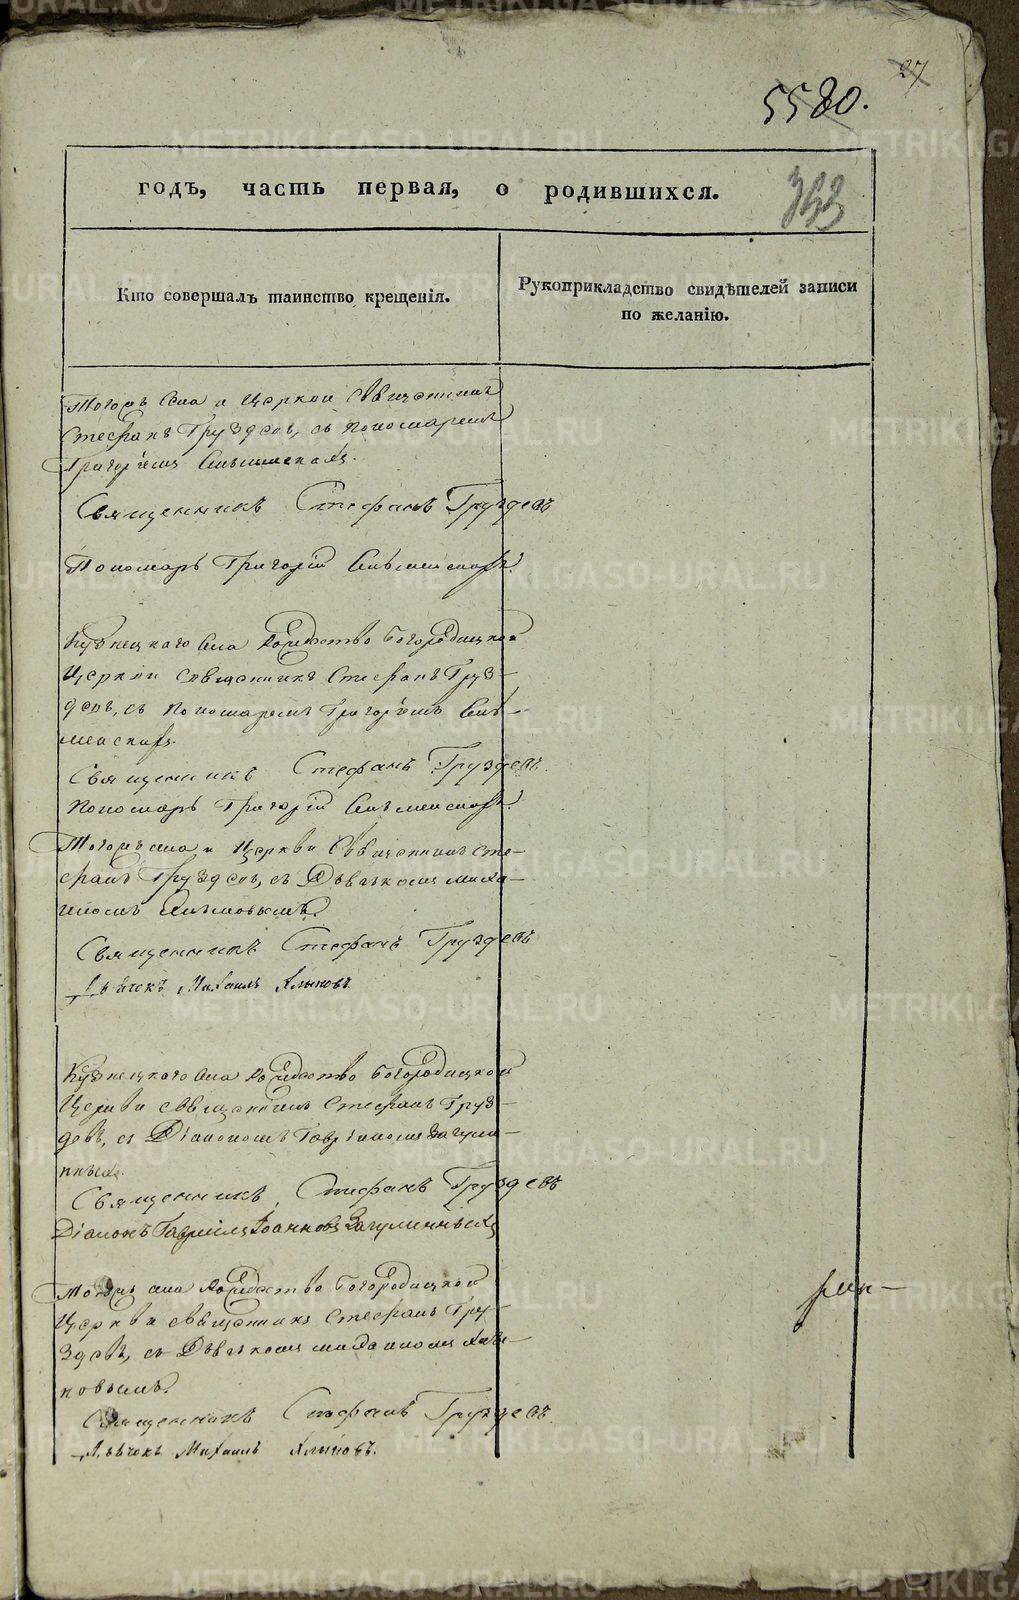 27
5580.
годъ, часть первая, о родившихся.
353
Кто совершалъ таинство крещенія.
Рукоприкладство свидѣтелей записи
по желанію.
Тогожъ села и Церкви Священникъ
Стефанъ Груздевъ, съ пономаремъ
Григоріемъ
Священникъ Стефанъ Груздевъ
Пономарь Григорій
Кузнецкаго села Рождество Богородицкой
Церкви священникъ Стефанъ Груз-
девъ, съ пономаремъ Григоріемъ
Священникъ Стефанъ Груздевъ.
Пономарь Григорій
Тогожъ села и Церкви Священникъ Сте-
фанъ Груздевъ, съ Дьячкомъ Миха-
иломъ
Священникъ Стефанъ Груздевъ
Дьячекъ Михаилъ Ялыновъ
Кузнецкаго села Рождество Богородицкой
Церкви священникъ Стефанъ Груз-
девъ, съ Діакономъ Гавріиломъ
Священникъ Стефанъ Груздевъ
Діаконъ Гавріилъ Іоанновъ
Тогожъ села Рождество Богородицкой
Церкви священникъ Стефанъ Гру-
здевъ, съ Дьячкомъ Михаиломъ Ялы-
новымъ.
Священникъ Стефанъ Груздевъ.
Дьячекъ Михаилъ Ялыновъ.
METRIKI.GASO-URAL.RU